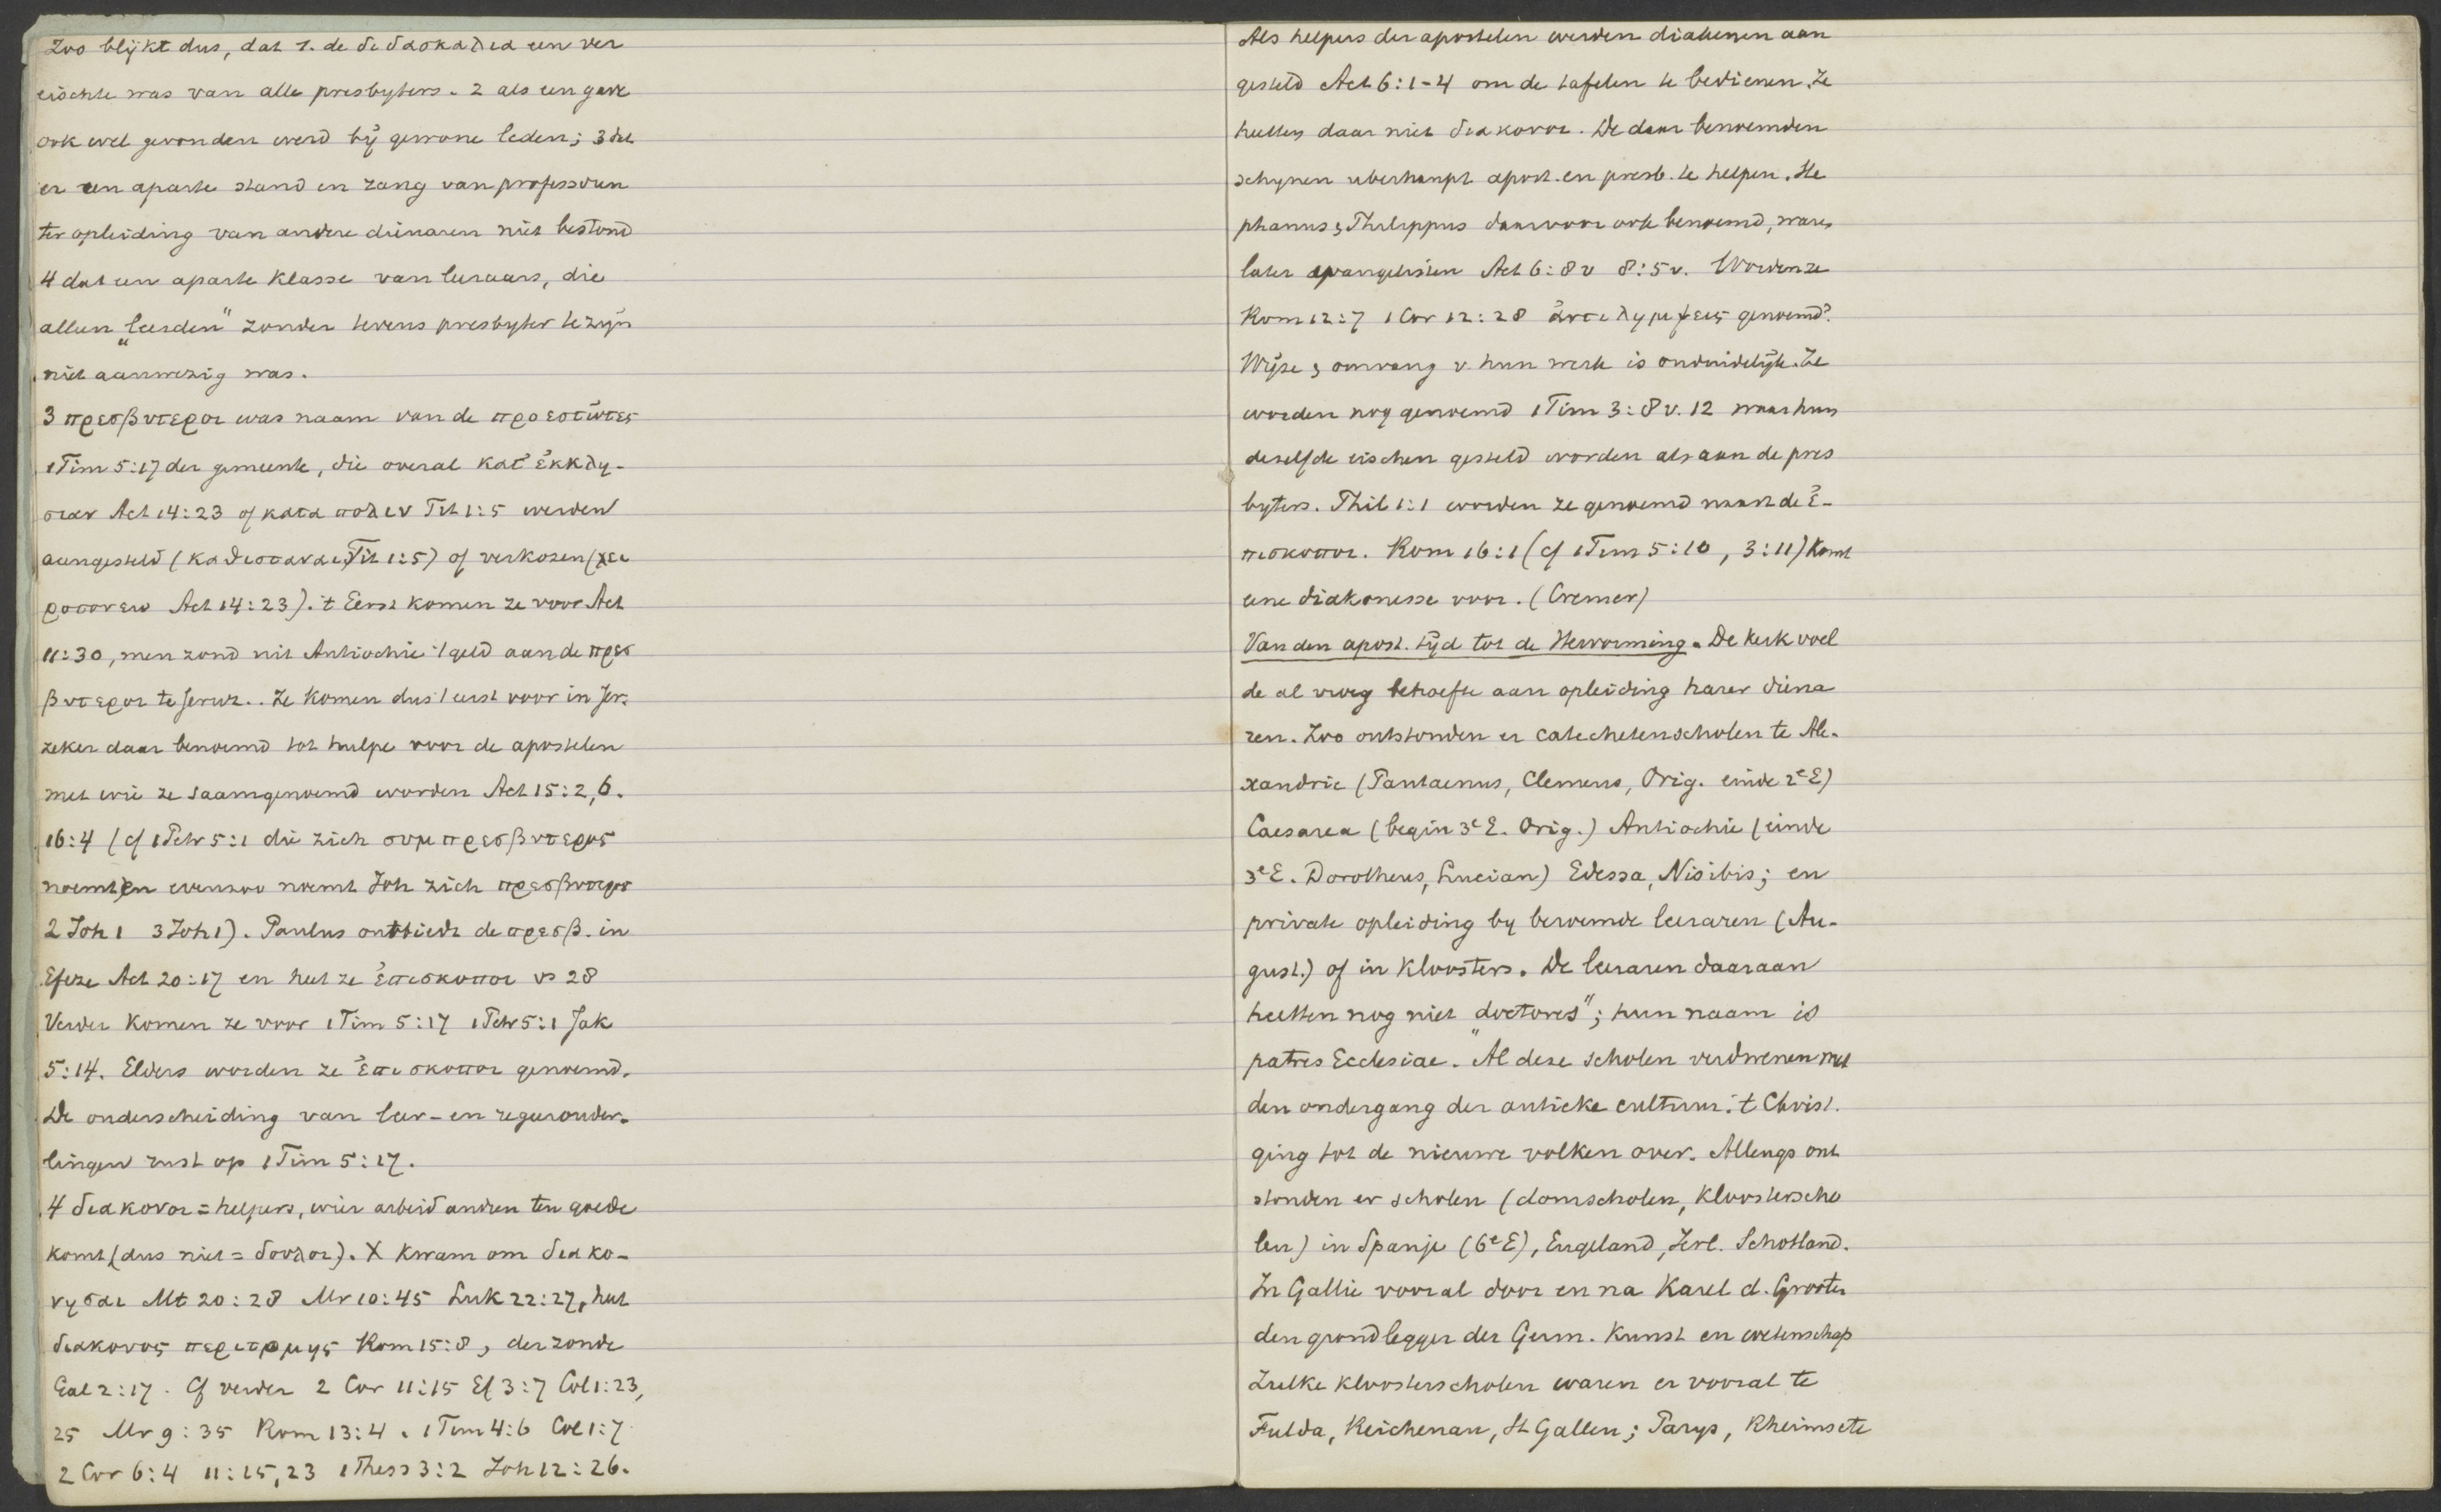 Zoo blijkt dus, dat 1. de διδασκαλια een ver
eischte was van alle presbyters. 2 als een gave
ook wel gevonden werd bij gewone leden; 3 dat
er een aparte stand en rang van professoren
ter opleiding van andere dienaren niet bestond
4 dat een aparte klasse van leeraars, die
alleen „leerden" zonder tevens presbyter te zijn
niet aanwezig was.
3 πρεσβυτεροι was naam van de προεστῶτες
1 Tim 5:17 der gemeente, die overal κατ' ἐκκλη-
σιαν Act 14:23 of κατα πολιν Tit 1:5 werden
aangesteld (καθισταναι Tit 1:5) of verkozen (χει
ροτονειν Act 14:23). 't Eerst komen ze voor Act
11:30, men zond uit Antiochie 't geld aan de πρεσ
βυτεροι te Jeruz.. Ze komen dus 't eerst voor in Jer.
zeker daar benoemd tot hulpe voor de apostelen
met wie ze saamgenoemd worden Act 15:2,6.
16:4 (cf 1 Petr 5:1 die zich συμπρεσβυτερος
noemt) en evenzoo noemt Joh zich πρεσβυτερος
2 Joh 1 3 Joh 1). Paulus ontbiedt de πρεσβ. in
Efeze Act 20:17 en heet ze ἐπισκοποι vs 28
Verder komen ze voor 1 Tim 5:17 1 Petr 5:1 Jak
5:14. Elders worden ze ἐπισκοποι genoemd.
De onderscheiding van leer- en regeerouder-
lingen rust op 1 Tim 5:17.
4 διακονοι = helpers, wier arbeid andren ten goede
komt (dus niet = δουλοι). X kwam om διακο-
νησαι Mt 20:28 Mr 10:45 Luk 22:27, heet
διακονος περιτομης Rom 15:8, der zonde
Gal 2:17. Cf verder 2 Cor 11:15 Ef 3:7 Col 1:23,
25 Mr 9:35 Rom 13:4. 1 Tim 4:6 Col 1:7
2 Cor 6:4 11:15,23 1 Thess 3:2 Joh 12:26.
Als helpers der apostelen werden diakenen aan
gesteld Act 6:1-4 om de tafelen te bedienen. Ze
heeten daar niet διακονοι. De daar benoemden
schynen uberhaupt apost. en presb. te helpen. Ste
phanus & Philippus daarvoor ook benoemd, waren
later evangelisten Act 6:8 v 8:5 v. Worden ze
Rom 12:7 1 Cor 12:28 ἀντιλημψεις genoemd?
Wijze & omvang v. hun werk is onduidelijk. Ze
worden nog genoemd 1 Tim 3:8 v. 12 waar hun
deselfde eischen gesteld worden als aan de pres
byters. Phil 1:1 worden ze genoemd naast de ἐ-
πισκοποι. Rom 16:1 (cf 1 Tim 5:10, 3:11) komt
eene diakonesse voor. (Cremer)
Van den apost. tijd tot de Hervorming. De kerk voel
de al vroeg behoefte aan opleiding harer diena
ren. Zoo ontstonden er catechetenscholen te Ale-
xandrie (Pantaenus, Clemens, Orig. einde 2e E)
Caesarea (begin 3e E. Orig.) Antiochie (einde
3e E. Dorotheus, Lucian) Edessa, Nisibis; en
private opleiding by beroemde leeraren (Au-
gust.) of in kloosters. De leeraren daaraan
heetten nog niet „doctores"; hun naam is
patres Ecclesiae. Al deze scholen verdwenen met
den ondergang der antieke cultuur. 't Christ.
ging tot de nieuwe volken over. Allengs ont
stonden er scholen (domscholen, kloosterscho
len) in Spanje (6e E), Engeland, Ierl. Schotland.
In Gallie vooral door en na Karel d. Grooten
den grondlegger der Germ. kunst en wetenschap
Zulke kloosterscholen waren er vooral te
Fulda, Reichenau, St Gallen; Parys, Rheims etc